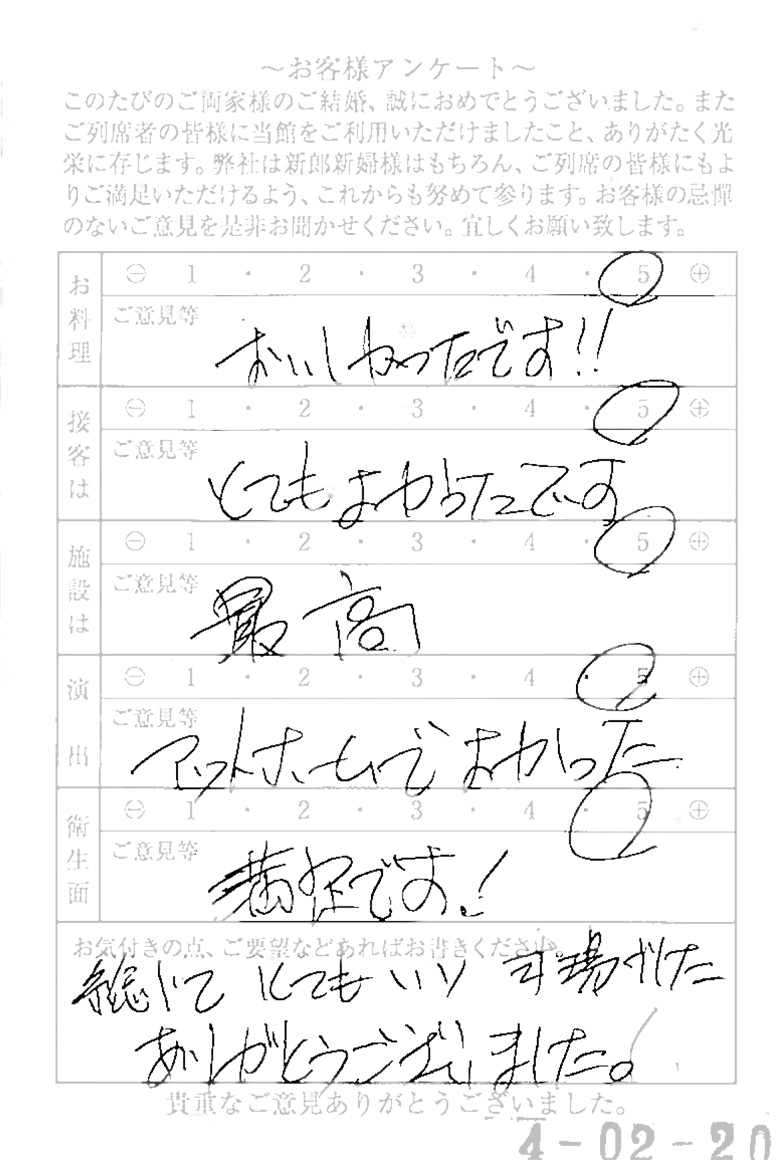 ～お客様アンケート～
このたびのご両家様のご結婚、誠におめでとうございました。また
ご列席者の皆様に当館をご利用いただけましたこと、ありがたく光
栄に存じます。弊社は新郎新婦様はもちろん、ご列席の皆様にもよ
りご満足いただけるよう、これからも努めて参ります。お客様の忌憚
のないご意見を是非お聞かせください。宜しくお願い致します。
お料理
㊀ 1 ・ 2 ・ 3 ・ 4 ・ 5 ㊉
ご意見等
おいしかったです!!
接客は
㊀ 1 ・ 2 ・ 3 ・ 4 ・ 5 ㊉
ご意見等
とてもよかったです
施設は
㊀ 1 ・ 2 ・ 3 ・ 4 ・ 5 ㊉
ご意見等
最高
演出
㊀ 1 ・ 2 ・ 3 ・ 4 ・ 5 ㊉
ご意見等
アットホームでよかった
衛生面
㊀ 1 ・ 2 ・ 3 ・ 4 ・ 5 ㊉
ご意見等
満足です!
お気付きの点、ご要望などあればお書きください。
総じて とてもいい 式場でした
ありがとうございました。
貴重なご意見ありがとうございました。
4-02-20